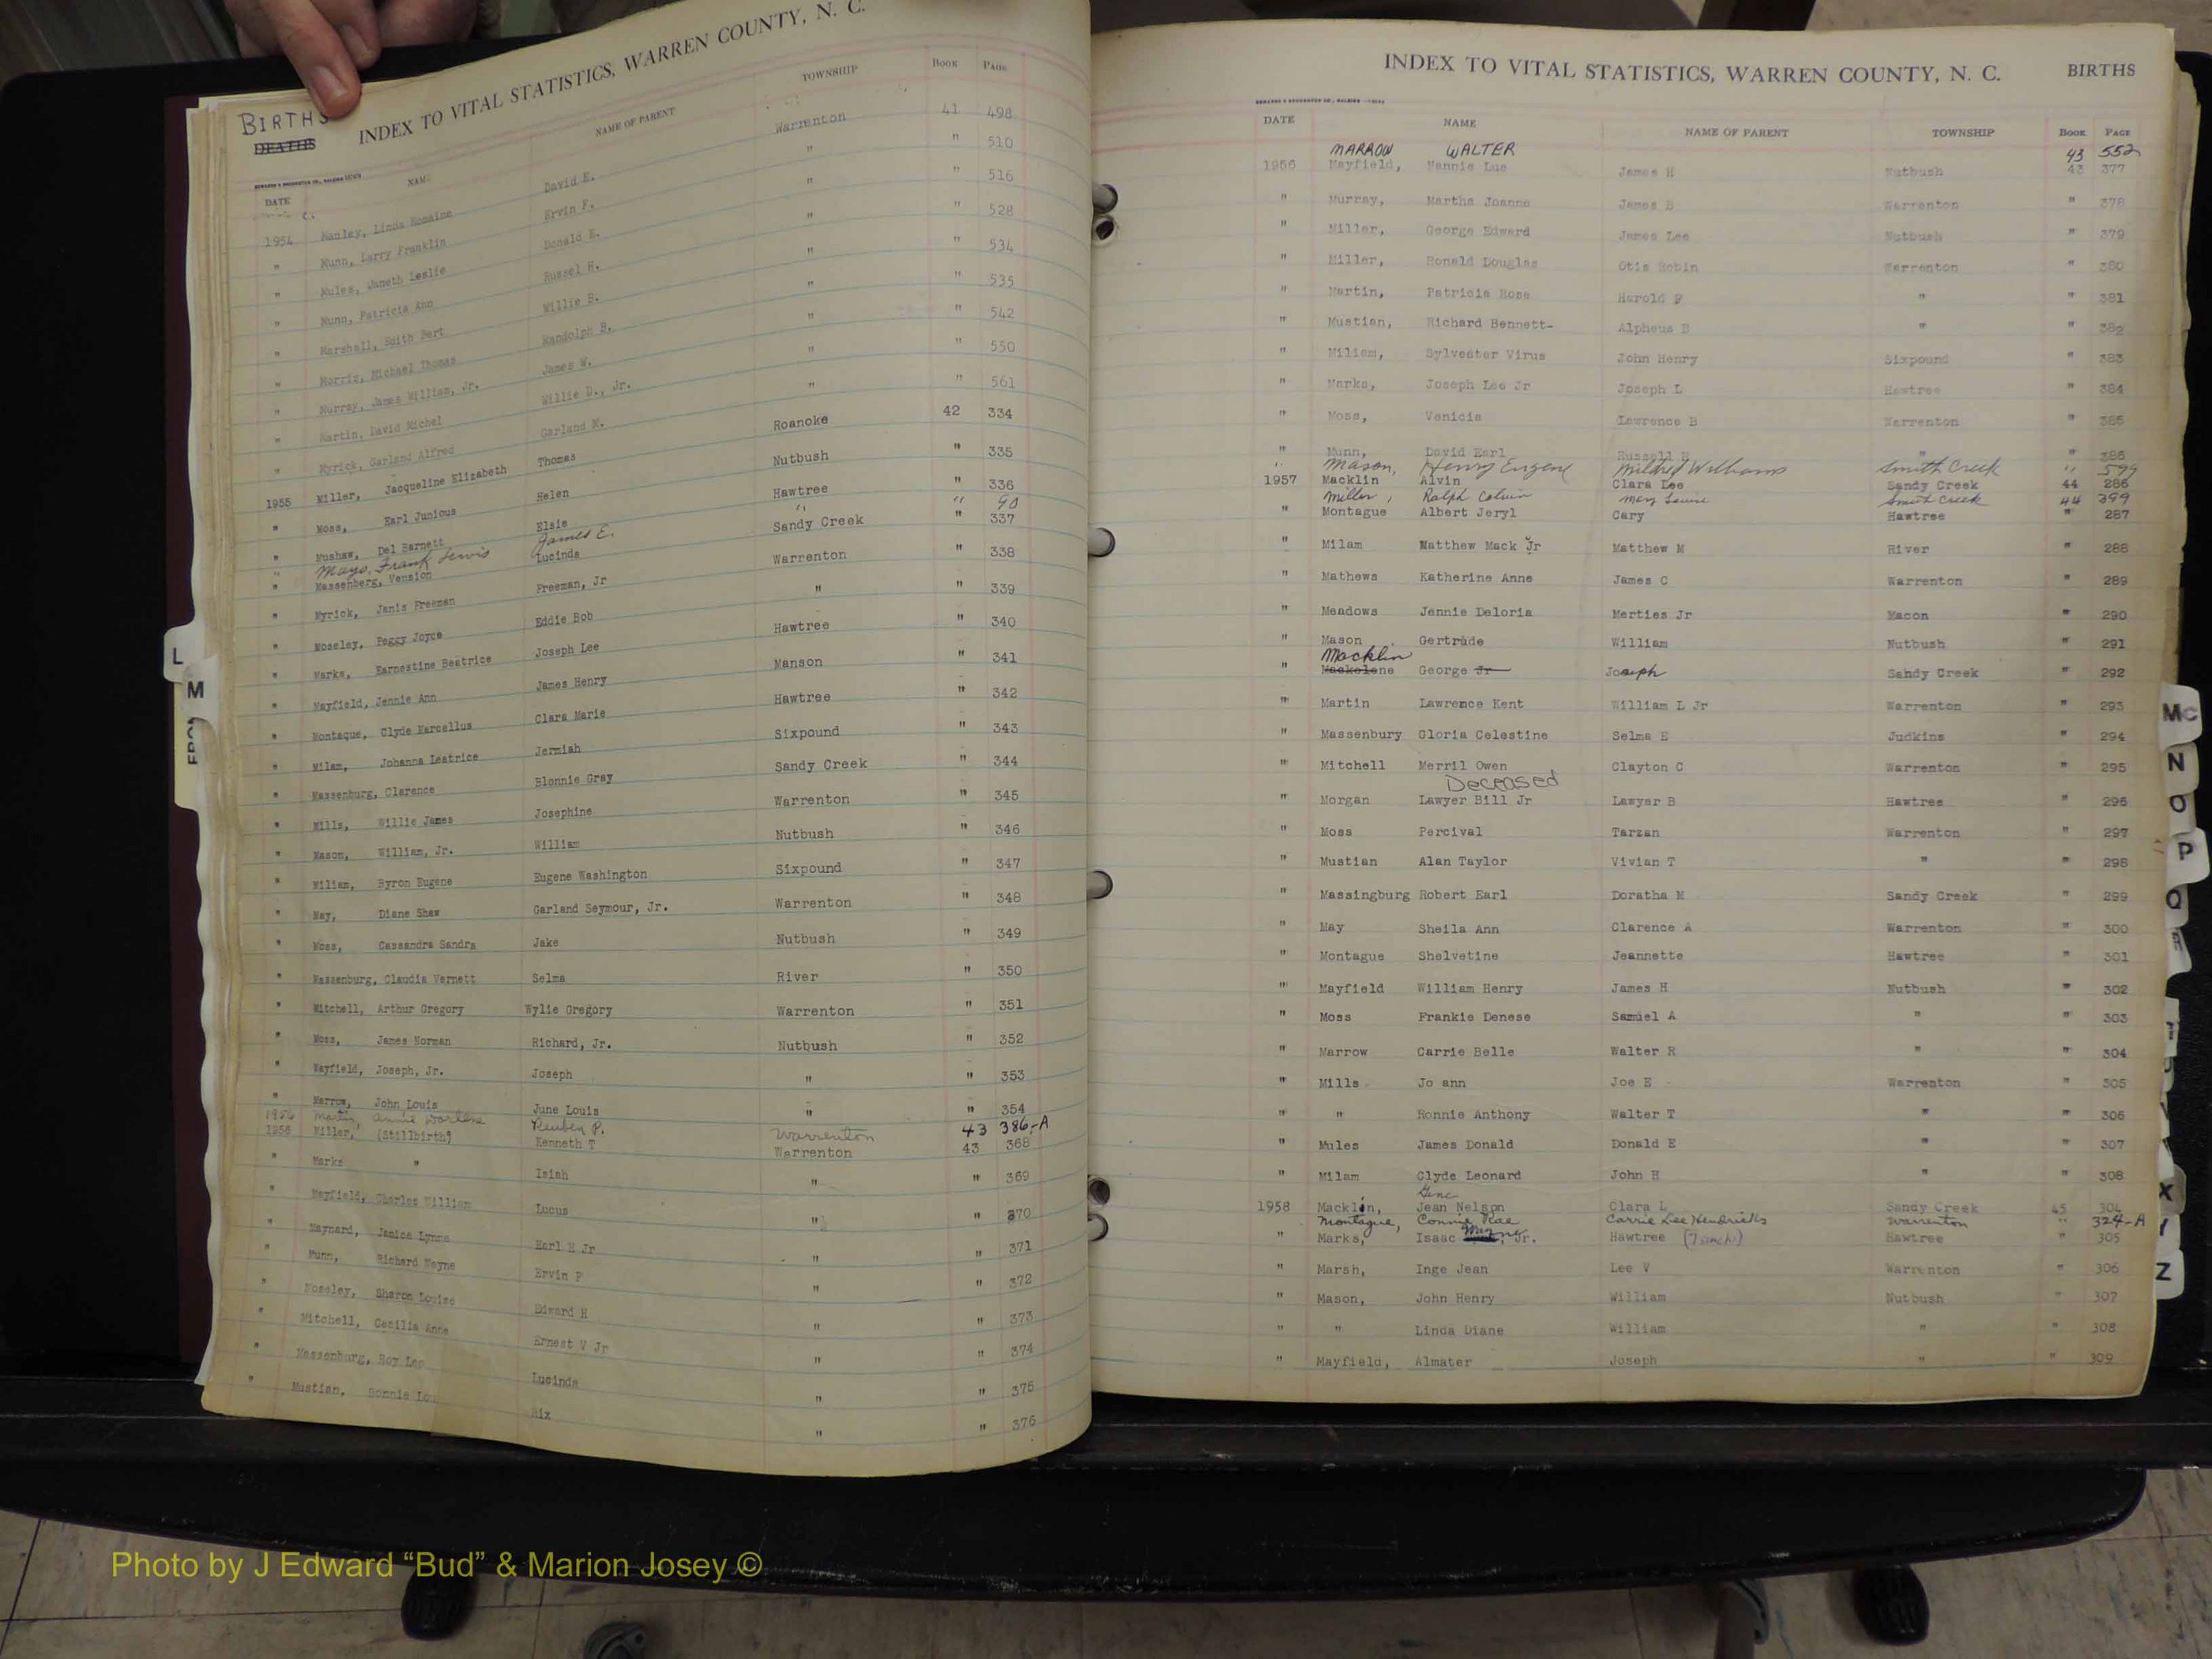 BIRTHS
DEATHS
INDEX TO VITAL STATISTICS, WARREN COUNTY, N. C.
DATE NAME NAME OF PARENT TOWNSHIP BOOK PAGE
1954 Manley, Linda Romaine David E. Warrenton 41 498
" Munn, Larry Franklin Ervin F. " " 510
" Mules, Janeth Leslie Donald E. " " 516
" Munn, Patricia Ann Russel H. " " 528
" Marshall, Edith Bert Willie B. " " 534
" Morris, Michael Thomas Randolph B. " " 535
" Murray, James William, Jr. James W. " " 542
" Martin, David Michel Willie D., Jr. " " 550
" Myrick, Garland Alfred Garland M. " " 561
1955 Miller, Jacqueline Elizabeth Thomas Roanoke 42 334
" Moss, Earl Junious Helen Nutbush " 335
" Mushaw, Del Barnett Elsie Hawtree " 336
" Mayo, Frank Lewis James E. " " 90
" Massenberg, Vension Lucinda Sandy Creek " 337
" Myrick, Janis Freeman Freeman, Jr Warrenton " 338
" Moseley, Peggy Joyce Eddie Bob " " 339
" Marks, Earnestine Beatrice Joseph Lee Hawtree " 340
" Mayfield, Jennie Ann James Henry Manson " 341
" Montaque, Clyde Marcellus Clara Marie Hawtree " 342
" Milam, Johanna Leatrice Jermiah Sixpound " 343
" Massenburg, Clarence Blonnie Gray Sandy Creek " 344
" Mills, Willie James Josephine Warrenton " 345
" Mason, William, Jr. William Nutbush " 346
" Miliam, Byron Eugene Eugene Washington Sixpound " 347
" May, Diane Shaw Garland Seymour, Jr. Warrenton " 348
" Moss, Cassandra Sandra Jake Nutbush " 349
" Massenburg, Claudia Vernett Selma River " 350
" Mitchell, Arthur Gregory Wylie Gregory Warrenton " 351
" Moss, James Norman Richard, Jr. Nutbush " 352
" Mayfield, Joseph, Jr. Joseph " " 353
" Marrow, John Louis June Louis " " 354
1956 Martin, Annie Darlene Reuben P. Warrenton 43 386-A
1956 Miller, (Stillbirth) Kenneth T Warrenton 43 368
" Marks " Isiah " " 369
" Mayfield, Charles William Lucus " " 370
" Maynard, Janice Lynne Earl H Jr " " 371
" Munn, Richard Wayne Ervin F " " 372
" Moseley, Sharon Louise Edward H " " 373
" Mitchell, Cecilia Anne Ernest V Jr " " 374
" Massenburg, Roy Lee Lucinda " " 375
" Mustian, Bonnie Lou Rix " " 376
L
M
INDEX TO VITAL STATISTICS, WARREN COUNTY, N. C. BIRTHS
DATE NAME NAME OF PARENT TOWNSHIP BOOK PAGE
MARROW WALTER 43 552
1956 Mayfield, Nannie Lue James H Nutbush 43 377
" Murray, Martha Joanne James B Warrenton " 378
" Miller, George Edward James Lee Nutbush " 379
" Miller, Ronald Douglas Otis Robin Warrenton " 380
" Martin, Patricia Rose Harold F " " 381
" Mustian, Richard Bennett- Alpheus B " " 382
" Miliam, Sylvester Virus John Henry Sixpound " 383
" Marks, Joseph Lee Jr Joseph L Hawtree " 384
" Moss, Venicia Lawrence B Warrenton " 385
" Munn, David Earl Russell H " " 386
" Mason, Henry Eugene Mildred Williams Smith Creek " 599
1957 Macklin Alvin Clara Lee Sandy Creek 44 286
Miller, Ralph Calvin Mary Louise Smith Creek 44 399
" Montague Albert Jeryl Cary Hawtree " 287
" Milam Matthew Mack Jr Matthew M River " 288
" Mathews Katherine Anne James C Warrenton " 289
" Meadows Jennie Deloria Merties Jr Macon " 290
" Mason Gertrude William Nutbush " 291
Macklin
" Mackelene George Jr Joseph Sandy Creek " 292
" Martin Lawrence Kent William L Jr Warrenton " 293
" Massenbury Gloria Celestine Selma E Judkins " 294
" Mitchell Merril Owen Clayton C Warrenton " 295
Deceased
" Morgan Lawyer Bill Jr Lawyer B Hawtree " 296
" Moss Percival Tarzan Warrenton " 297
" Mustian Alan Taylor Vivian T " " 298
" Massingburg Robert Earl Doratha M Sandy Creek " 299
" May Sheila Ann Clarence A Warrenton " 300
" Montague Shelvetine Jeannette Hawtree " 301
" Mayfield William Henry James H Nutbush " 302
" Moss Frankie Denese Samuel A " " 303
" Marrow Carrie Belle Walter R " " 304
" Mills Jo ann Joe E Warrenton " 305
" " Ronnie Anthony Walter T " " 306
" Mules James Donald Donald E " " 307
" Milam Clyde Leonard John H " " 308
Gene
1958 Macklin, Jean Nelson Clara L Sandy Creek 45 304
Montague, Connie Rae Carrie Lee Hendricks Warrenton " 324-A
" Marks, Isaac Wayne, Jr. Hawtree Hawtree " 305
" Marsh, Inge Jean Lee V Warrenton " 306
" Mason, John Henry William Nutbush " 307
" " Linda Diane William " " 308
" Mayfield, Almater Joseph " " 309
Mc
N
O
P
Q
R
X
Y
Z
Photo by J Edward “Bud” & Marion Josey ©